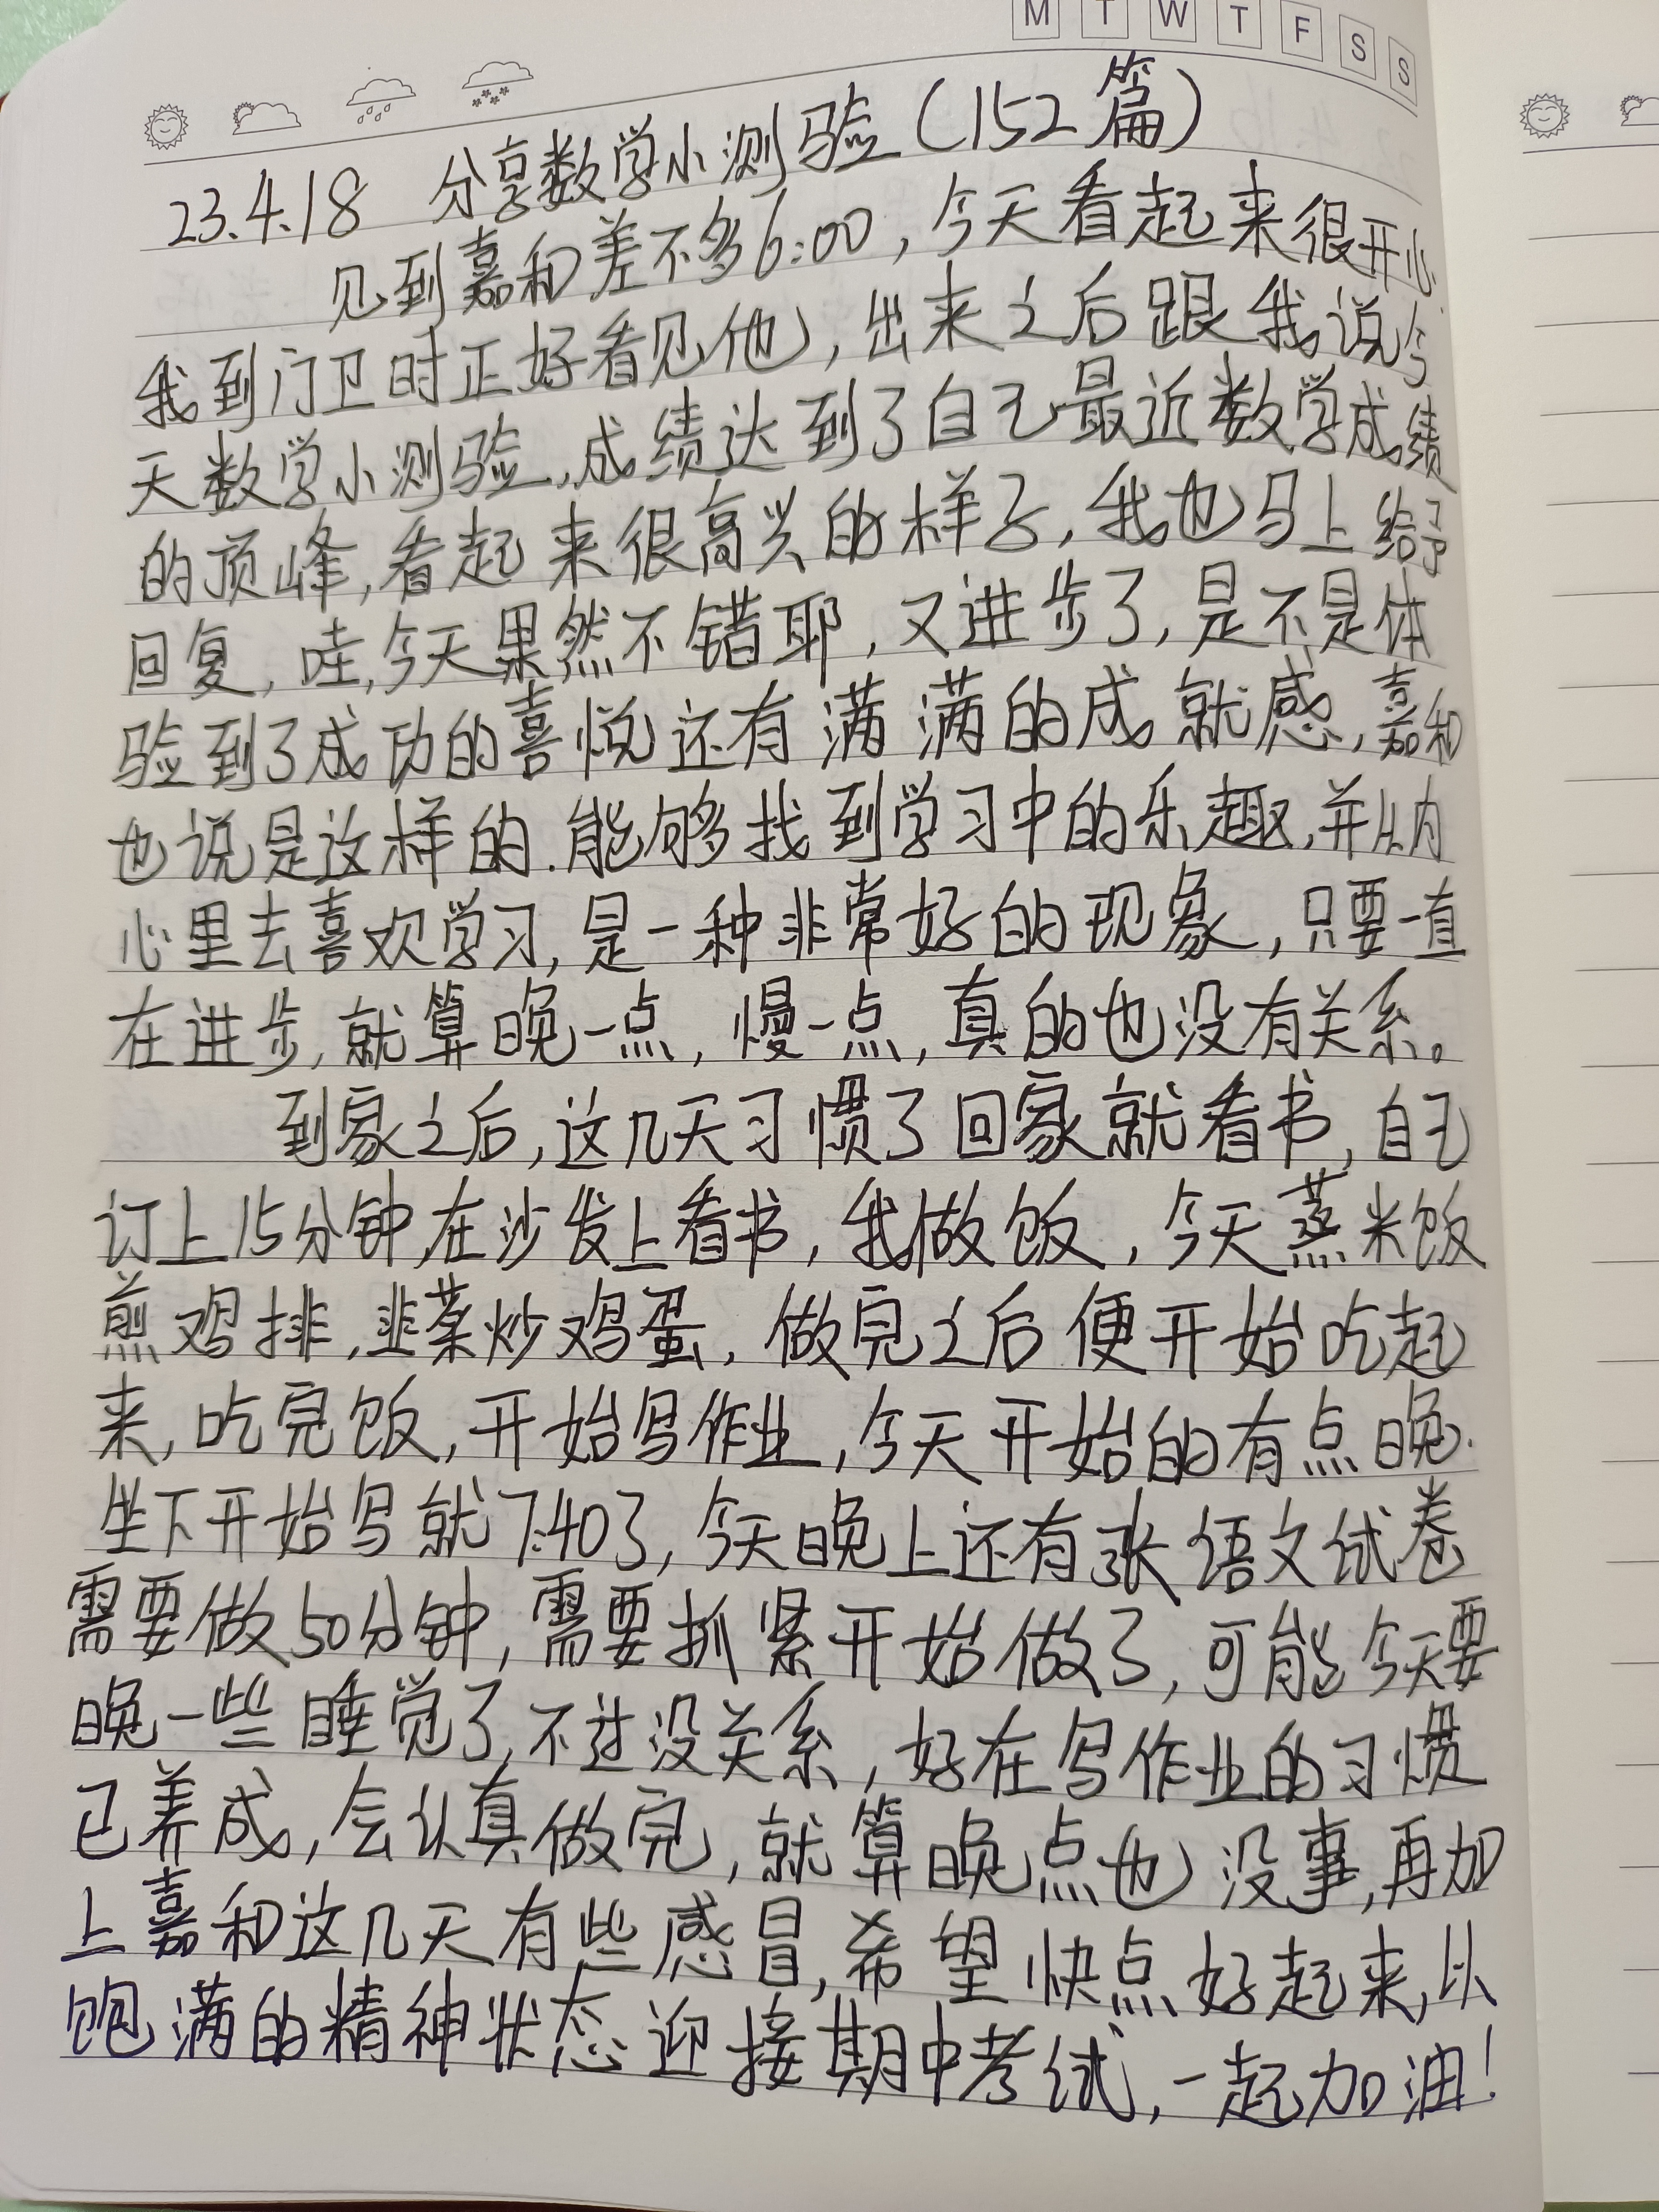 M T W T F S S
23.4.18 分享数学小测验(152篇)
见到嘉和差不多6:00,今天看起来很开心.
我到门卫时正好看见他,出来之后跟我说今
天数学小测验,成绩达到了自己最近数学成绩
的顶峰,看起来很高兴的样子,我也马上给予
回复,哇,今天果然不错耶,又进步了,是不是体
验到了成功的喜悦还有满满的成就感,嘉和
也说是这样的.能够找到学习中的乐趣,并从内
心里去喜欢学习,是一种非常好的现象,只要一直
在进步,就算晚一点,慢一点,真的也没有关系。
到家之后,这几天习惯了回家就看书,自己
订上15分钟,在沙发上看书,我做饭,今天蒸米饭
煎鸡排,韭菜炒鸡蛋,做完之后便开始吃起
来,吃完饭,开始写作业,今天开始的有点晚.
坐下开始写就7:40了,今天晚上还有张语文试卷
需要做50分钟,需要抓紧开始做了,可能今天要
晚一些睡觉了,不过没关系,好在写作业的习惯
已养成,会认真做完,就算晚点也没事,再加
上嘉和这几天有些感冒,希望快点好起来,以
饱满的精神状态迎接期中考试,一起加油!